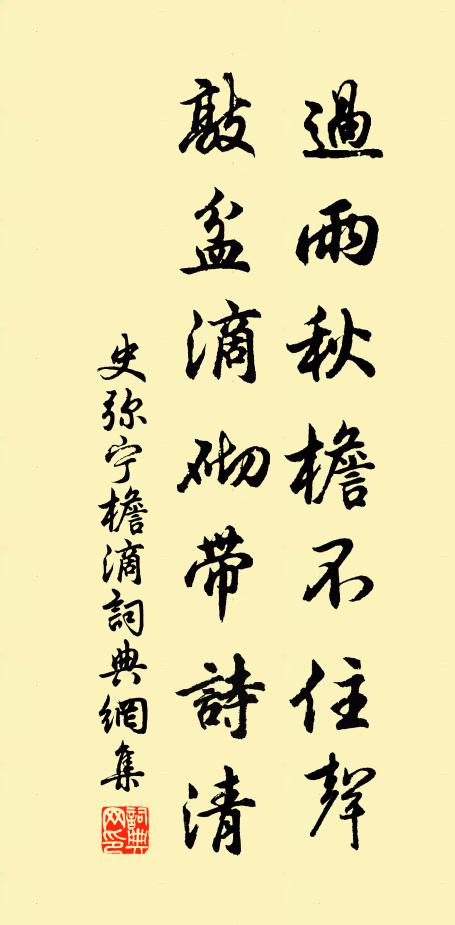 過雨秋檐不住聲
敲盆滴砌帶詩清
史弥宁檐滴詞典網集
詞典網印